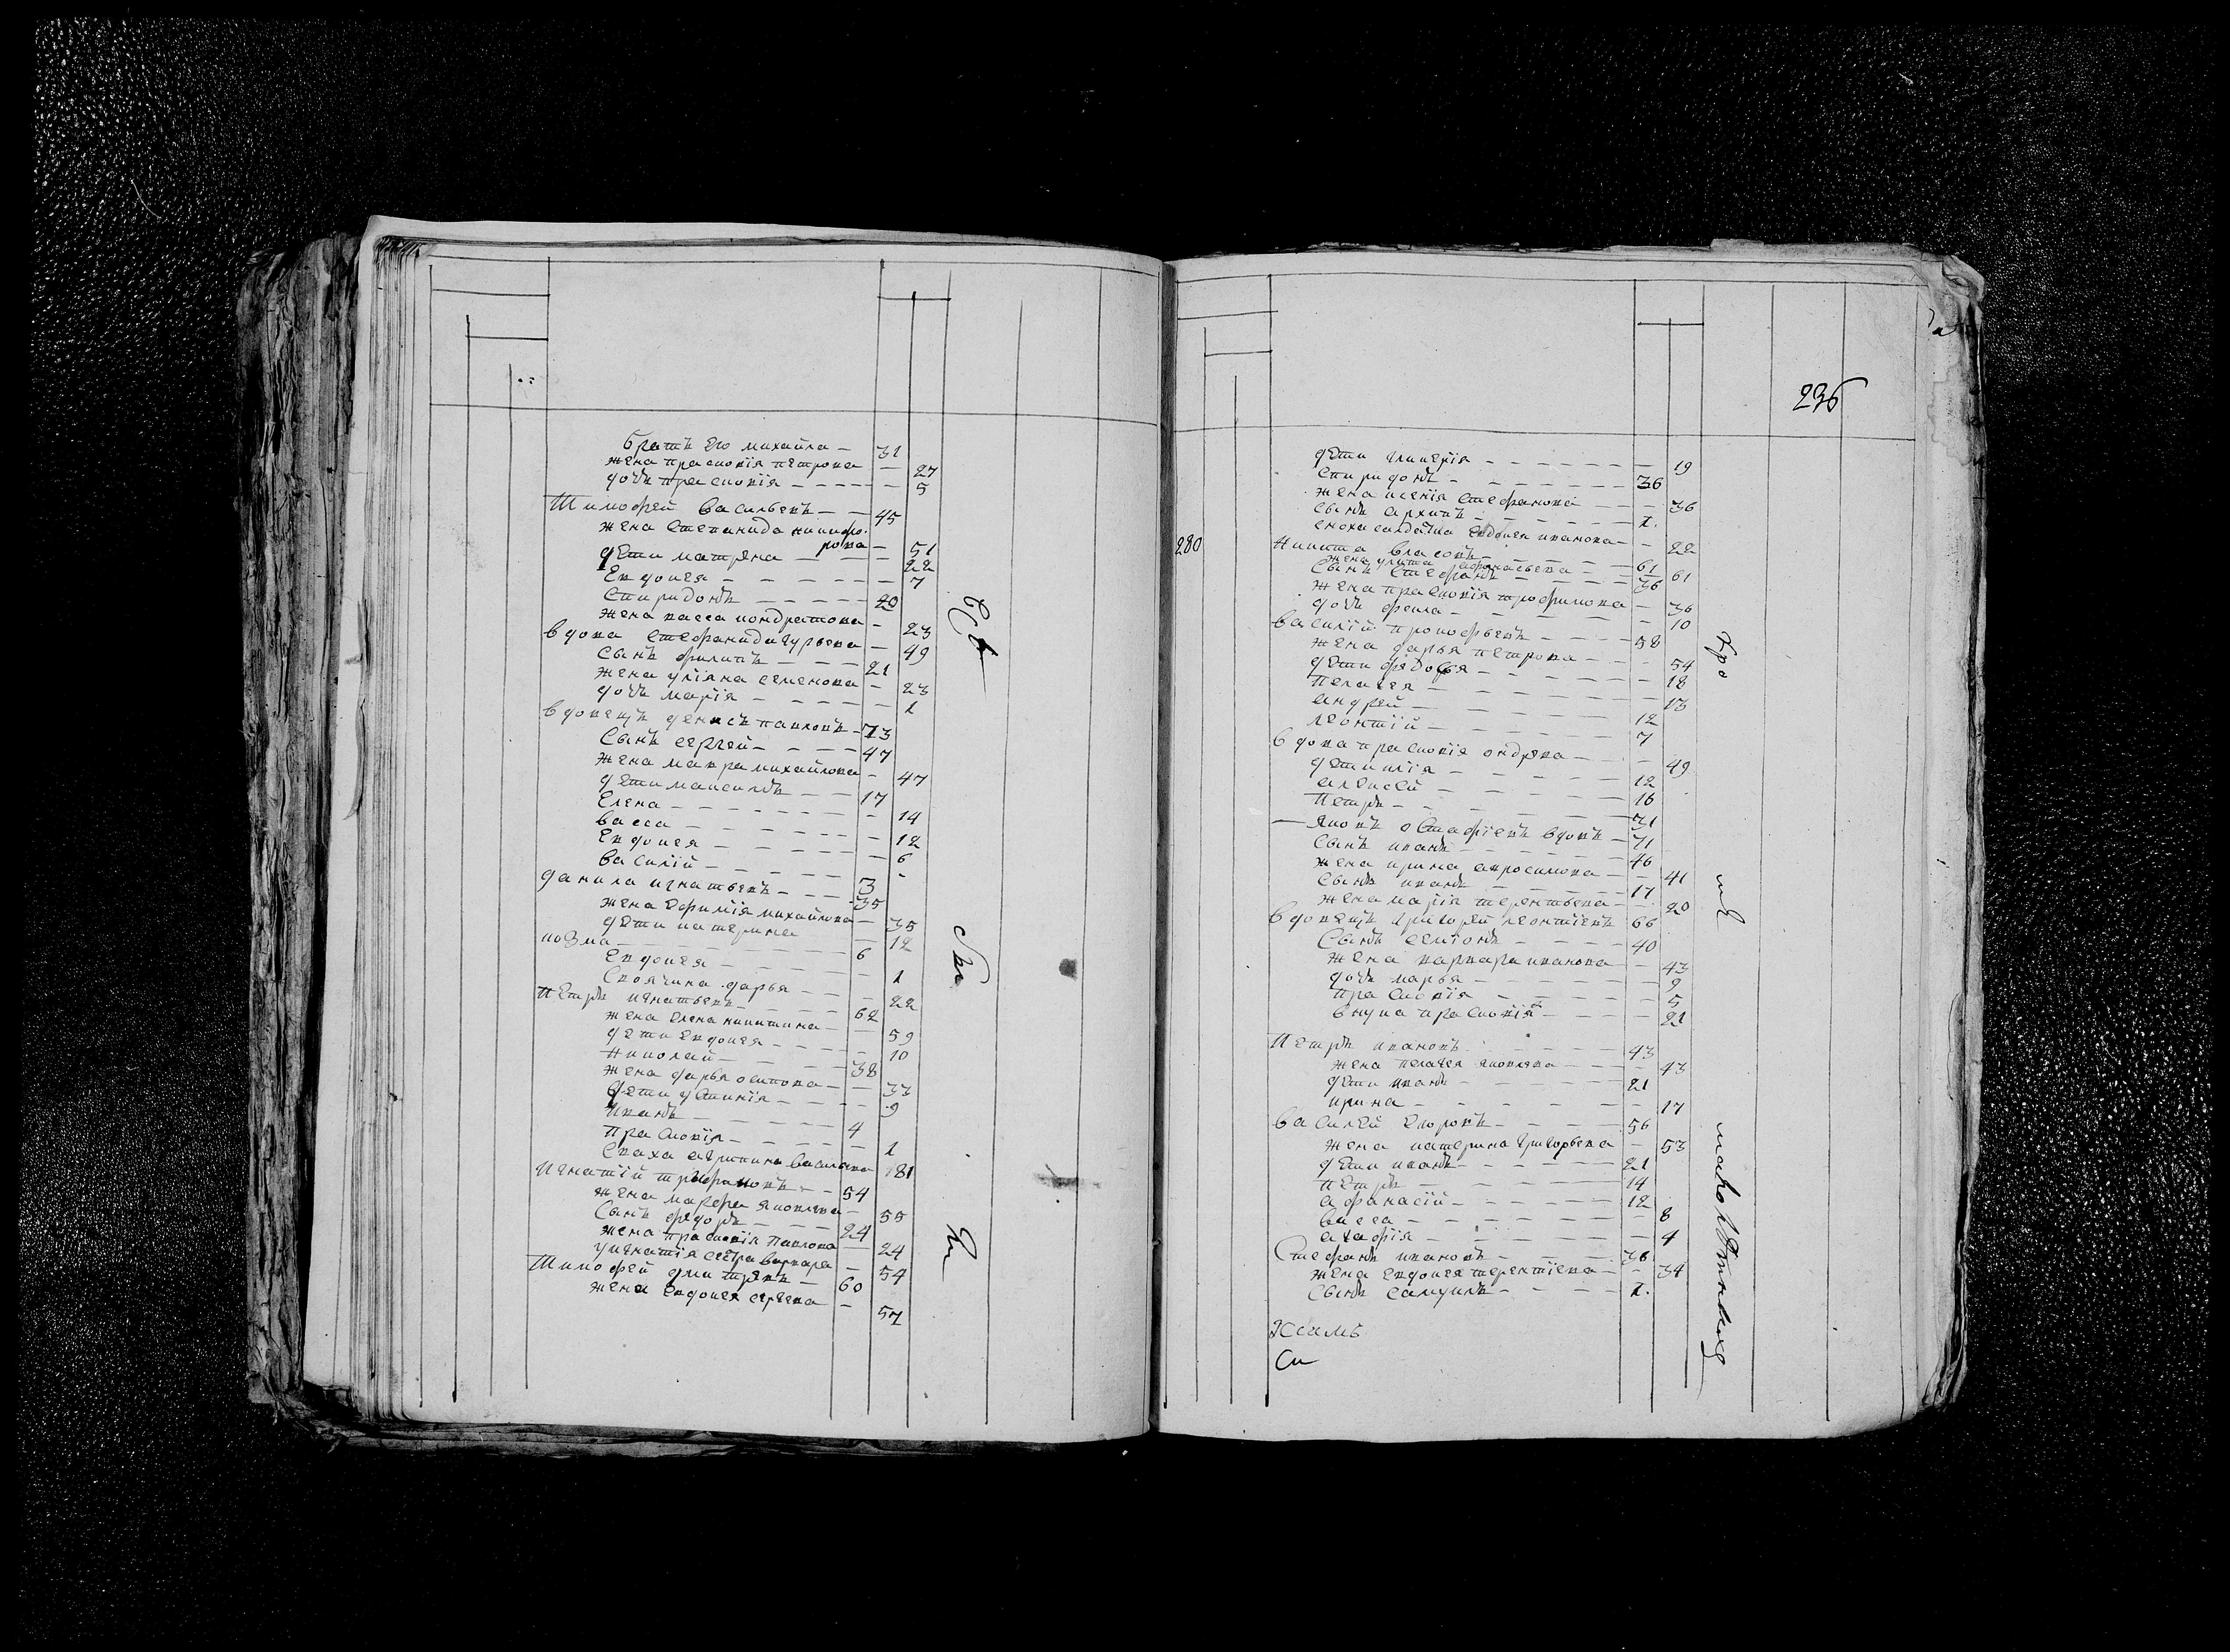 братъ его михаила — 31
жена прасковiя петрова — 27
дочь прасковiя — 5
Тимофей васильевъ — 45
жена степанида никифо
рова — 51
дѣти матрена — 22
Евдокея — 7
Спиридонъ — 20
жена васса кондратова — 23
вдова стефанида гурьева — 49
Сынъ филипъ — 21
жена улiяна семенова — 23
дочь марiя — 1
вдовецъ денисъ павловъ — 73
Сынъ сергей — 47
жена мавра михайлова — 47
дѣти максимъ — 17
Елена — 14
васса — 12
Евдокея — 6
василiй — 3
данила игнатьевъ — 35
жена Ефимiя михайлова — 35
дѣти катерина — 12
козма — 6
Евдокея — 1
Своячина дарья — 22
Петръ игнатьевъ — 62
жена Елена никитина — 59
дѣти Евдокея — 10
Николай — 38
жена дарья осипова — 33
дѣти устинiя — 9
Иванъ — 4
Прасковiя — 1
Сваха агрипина васильева 81
Игнатiй трифановъ — 54
жена марфа яковлева — 55
Сынъ федоръ — 24
жена прасковiя павлова — 24
у игнатiя сестра варвара — 54
Тимофей дмитревъ — 60
жена Евдокея сергева — 57
236
дѣти гликерiя — 19
Спиридонъ — 36
жена ксенiя стефанова — 36
сынъ архипъ — 1.
сноха салдатка Евдокея иванова — 22
280
Никита власовъ — 61
жена улита афонасьева — 61
Сынъ Стефанъ — 36
жена прасковiя трофимова — 36
дочь фекла — 10
василiй прокофьевъ — 58
жена дарья петрова — 54
дѣти федосья — 18
Пелагея — 13
андрей — 12
леонтiй — 7
вдова прасковiя ондрева — 49
дѣти илiя — 12
алексей — 16
Петръ — 31
— Яковъ остафiевъ вдовъ — 71
Сынъ иванъ — 46
жена ирина абросимова — 41
Сынъ иванъ — 17
жена марiя терентьева — 20
вдовецъ григорей леонтiевъ 66
Сынъ семiонъ — 40
жена варвара иванова — 43
дочь марья — 9
Прасковiя — 5
внука прасковiя — 21
Петръ ивановъ — 43
жена пелагея яковлева — 43
дѣти иванъ — 21
ирина — 17
василей Егоровъ — 56
жена катерина григорьева — 53
дѣти иванъ — 21
Петръ — 14
афанасiй — 12
васса — 8
агафiя — 4
Стефанъ ивановъ — 36
жена Евдокея терентiева — 34
Сынъ самуилъ — 1.
Ксимъ
Си